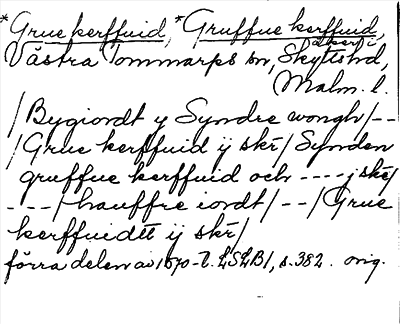 *Grue kerffuid, *Gruffue kerffuid,
åker i
Västra Tommarps sn, Skytts hd,
Malm. l.
/Bygiordt y Syndre wongh/--
/Grue kerffuid ÿ skr/Synden
gruffue kerffuid och ----j skr/
---/hauffre iordt/--/Grue
kerffuidtt ij skr/
förra delen av 1570-t. LSLB1, s. 382. orig.